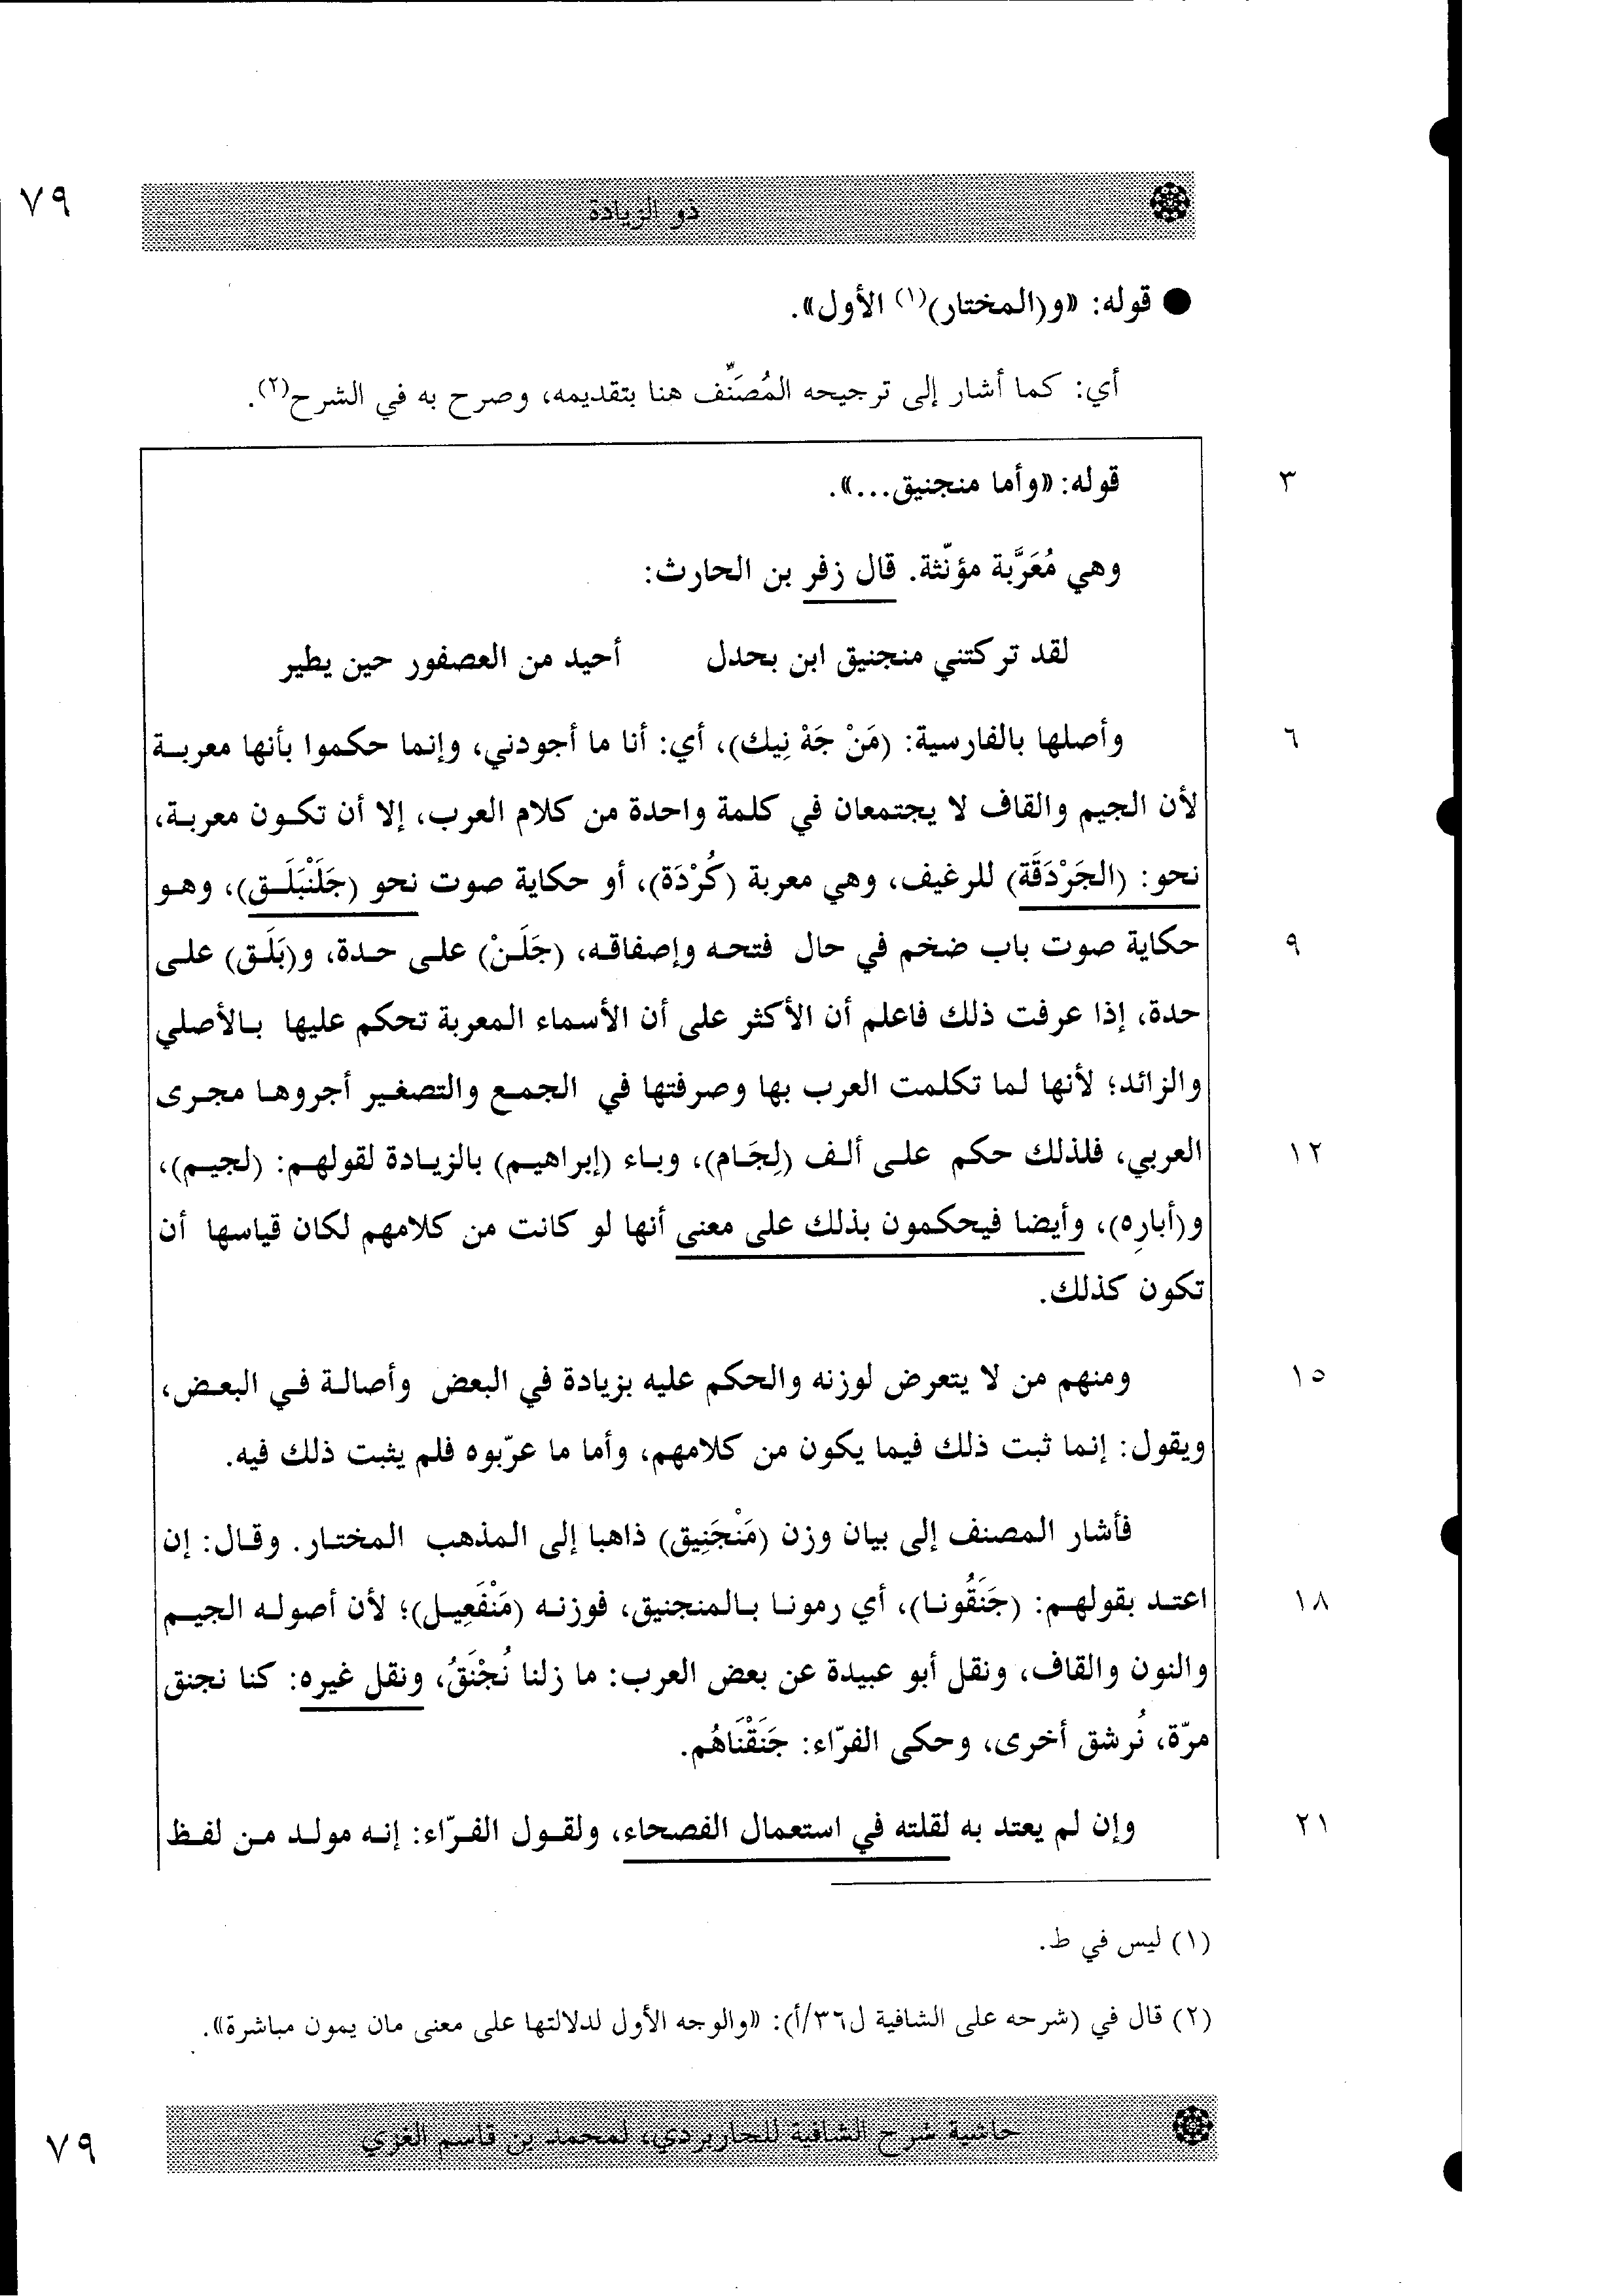 ٧٩
ذو الزيادة
● قوله: «و(المختار)(١) الأول».
أي: كما أشار إلى ترجيحه المُصَنِّف هنا بتقديمه، وصرح به في الشرح(٢).
٣ قوله: «وأما منجنيق...».
وهي مُعَرَّبة مؤنّثة. قال زفر بن الحارث:
لقد تركتني منجنيق ابن بحدل أحيد من العصفور حين يطير
٦ وأصلها بالفارسية: (مَنْ جَهْ نِيك)، أي: أنا ما أجودني، وإنما حكموا بأنها معربة
لأن الجيم والقاف لا يجتمعان في كلمة واحدة من كلام العرب، إلا أن تكون معربة،
نحو: (الجَرْدَقَة) للرغيف، وهي معربة (كُرْدَة)، أو حكاية صوت نحو (جَلَنْبَلَـق)، وهو
٩ حكاية صوت باب ضخم في حال فتحه وإصفاقه، (جَلَـنْ) على حدة، و(بَلَـق) على
حدة، إذا عرفت ذلك فاعلم أن الأكثر على أن الأسماء المعربة تحكم عليها بالأصلي
والزائد؛ لأنها لما تكلمت العرب بها وصرفتها في الجمع والتصغير أجروها مجرى
١٢ العربي، فلذلك حكم على ألف (لِجَام)، وباء (إبراهيم) بالزيادة لقولهم: (لجيم)،
و(أبارِه)، وأيضا فيحكمون بذلك على معنى أنها لو كانت من كلامهم لكان قياسها أن
تكون كذلك.
١٥ ومنهم من لا يتعرض لوزنه والحكم عليه بزيادة في البعض وأصالة في البعض،
ويقول: إنما ثبت ذلك فيما يكون من كلامهم، وأما ما عرّبوه فلم يثبت ذلك فيه.
فأشار المصنف إلى بيان وزن (مَنْجَنِيق) ذاهبا إلى المذهب المختار. وقال: إن
١٨ اعتد بقولهم: (جَنَقُونا)، أي رمونا بالمنجنيق، فوزنه (مَنْفَعِيل)؛ لأن أصوله الجيم
والنون والقاف، ونقل أبو عبيدة عن بعض العرب: ما زلنا نُجْنَقُ، ونقل غيره: كنا نجنق
مرّة، نُرشق أخرى، وحكى الفرّاء: جَنَقْنَاهُم.
٢١ وإن لم يعتد به لقلته في استعمال الفصحاء، ولقول الفرّاء: إنه مولد من لفظ
(١) ليس في ط.
(٢) قال في (شرحه على الشافية ل٣٦/أ): «والوجه الأول لدلالتها على معنى مان يمون مباشرة».
حاشية شرح الشافية للجاربردي، لمحمد بن قاسم الغزي
٧٩